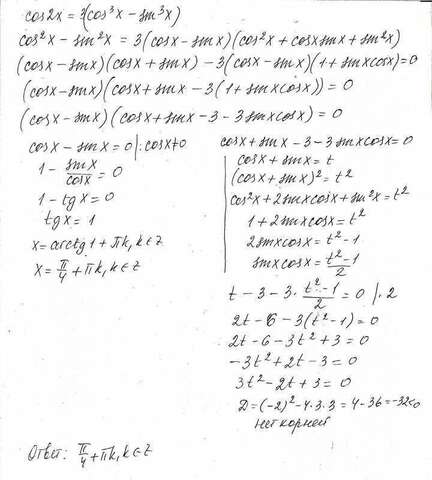 cos2x = 3(cos³x - sin³x)
cos²x - sin²x = 3(cosx - sinx)(cos²x + cosxsinx + sin²x)
(cosx - sinx)(cosx + sinx) - 3(cosx - sinx)(1 + sinxcosx) = 0
(cosx - sinx)(cosx + sinx - 3(1 + sinxcosx)) = 0
(cosx - sinx)(cosx + sinx - 3 - 3sinxcosx) = 0
cosx - sinx = 0 |: cosx≠0
1 - sinx/cosx = 0
1 - tgx = 0
tgx = 1
x = arctg1 + πk, k∈z
x = π/4 + πk, k∈z
cosx + sinx - 3 - 3sinxcosx = 0
cosx + sinx = t
(cosx + sinx)² = t²
cos²x + 2sinxcosx + sin²x = t²
1 + 2sinxcosx = t²
2sinxcosx = t² - 1
sinxcosx = t² - 1/2
t - 3 - 3 · t² - 1/2 = 0 | · 2
2t - 6 - 3(t² - 1) = 0
2t - 6 - 3t² + 3 = 0
-3t² + 2t - 3 = 0
3t² - 2t + 3 = 0
D = (-2)² - 4 · 3 · 3 = 4 - 36 = -32<0
нет корней
Ответ: π/4 + πk, k∈z